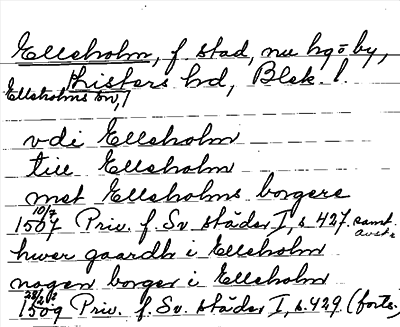 Elleholm, f. stad, nu hg o by,
Elleholms sn, / Listers hd, Blek. l.
vdi Elleholm
till Elleholm
met Elleholms borgere
10/7
1507 Priv. f. Sv städer I, s 427. samt.
avskr
hwer gaardh i Elleholm
nogen borger i Elleholm
1509 Priv. f. Sv. städer I, s. 429 (forts.)